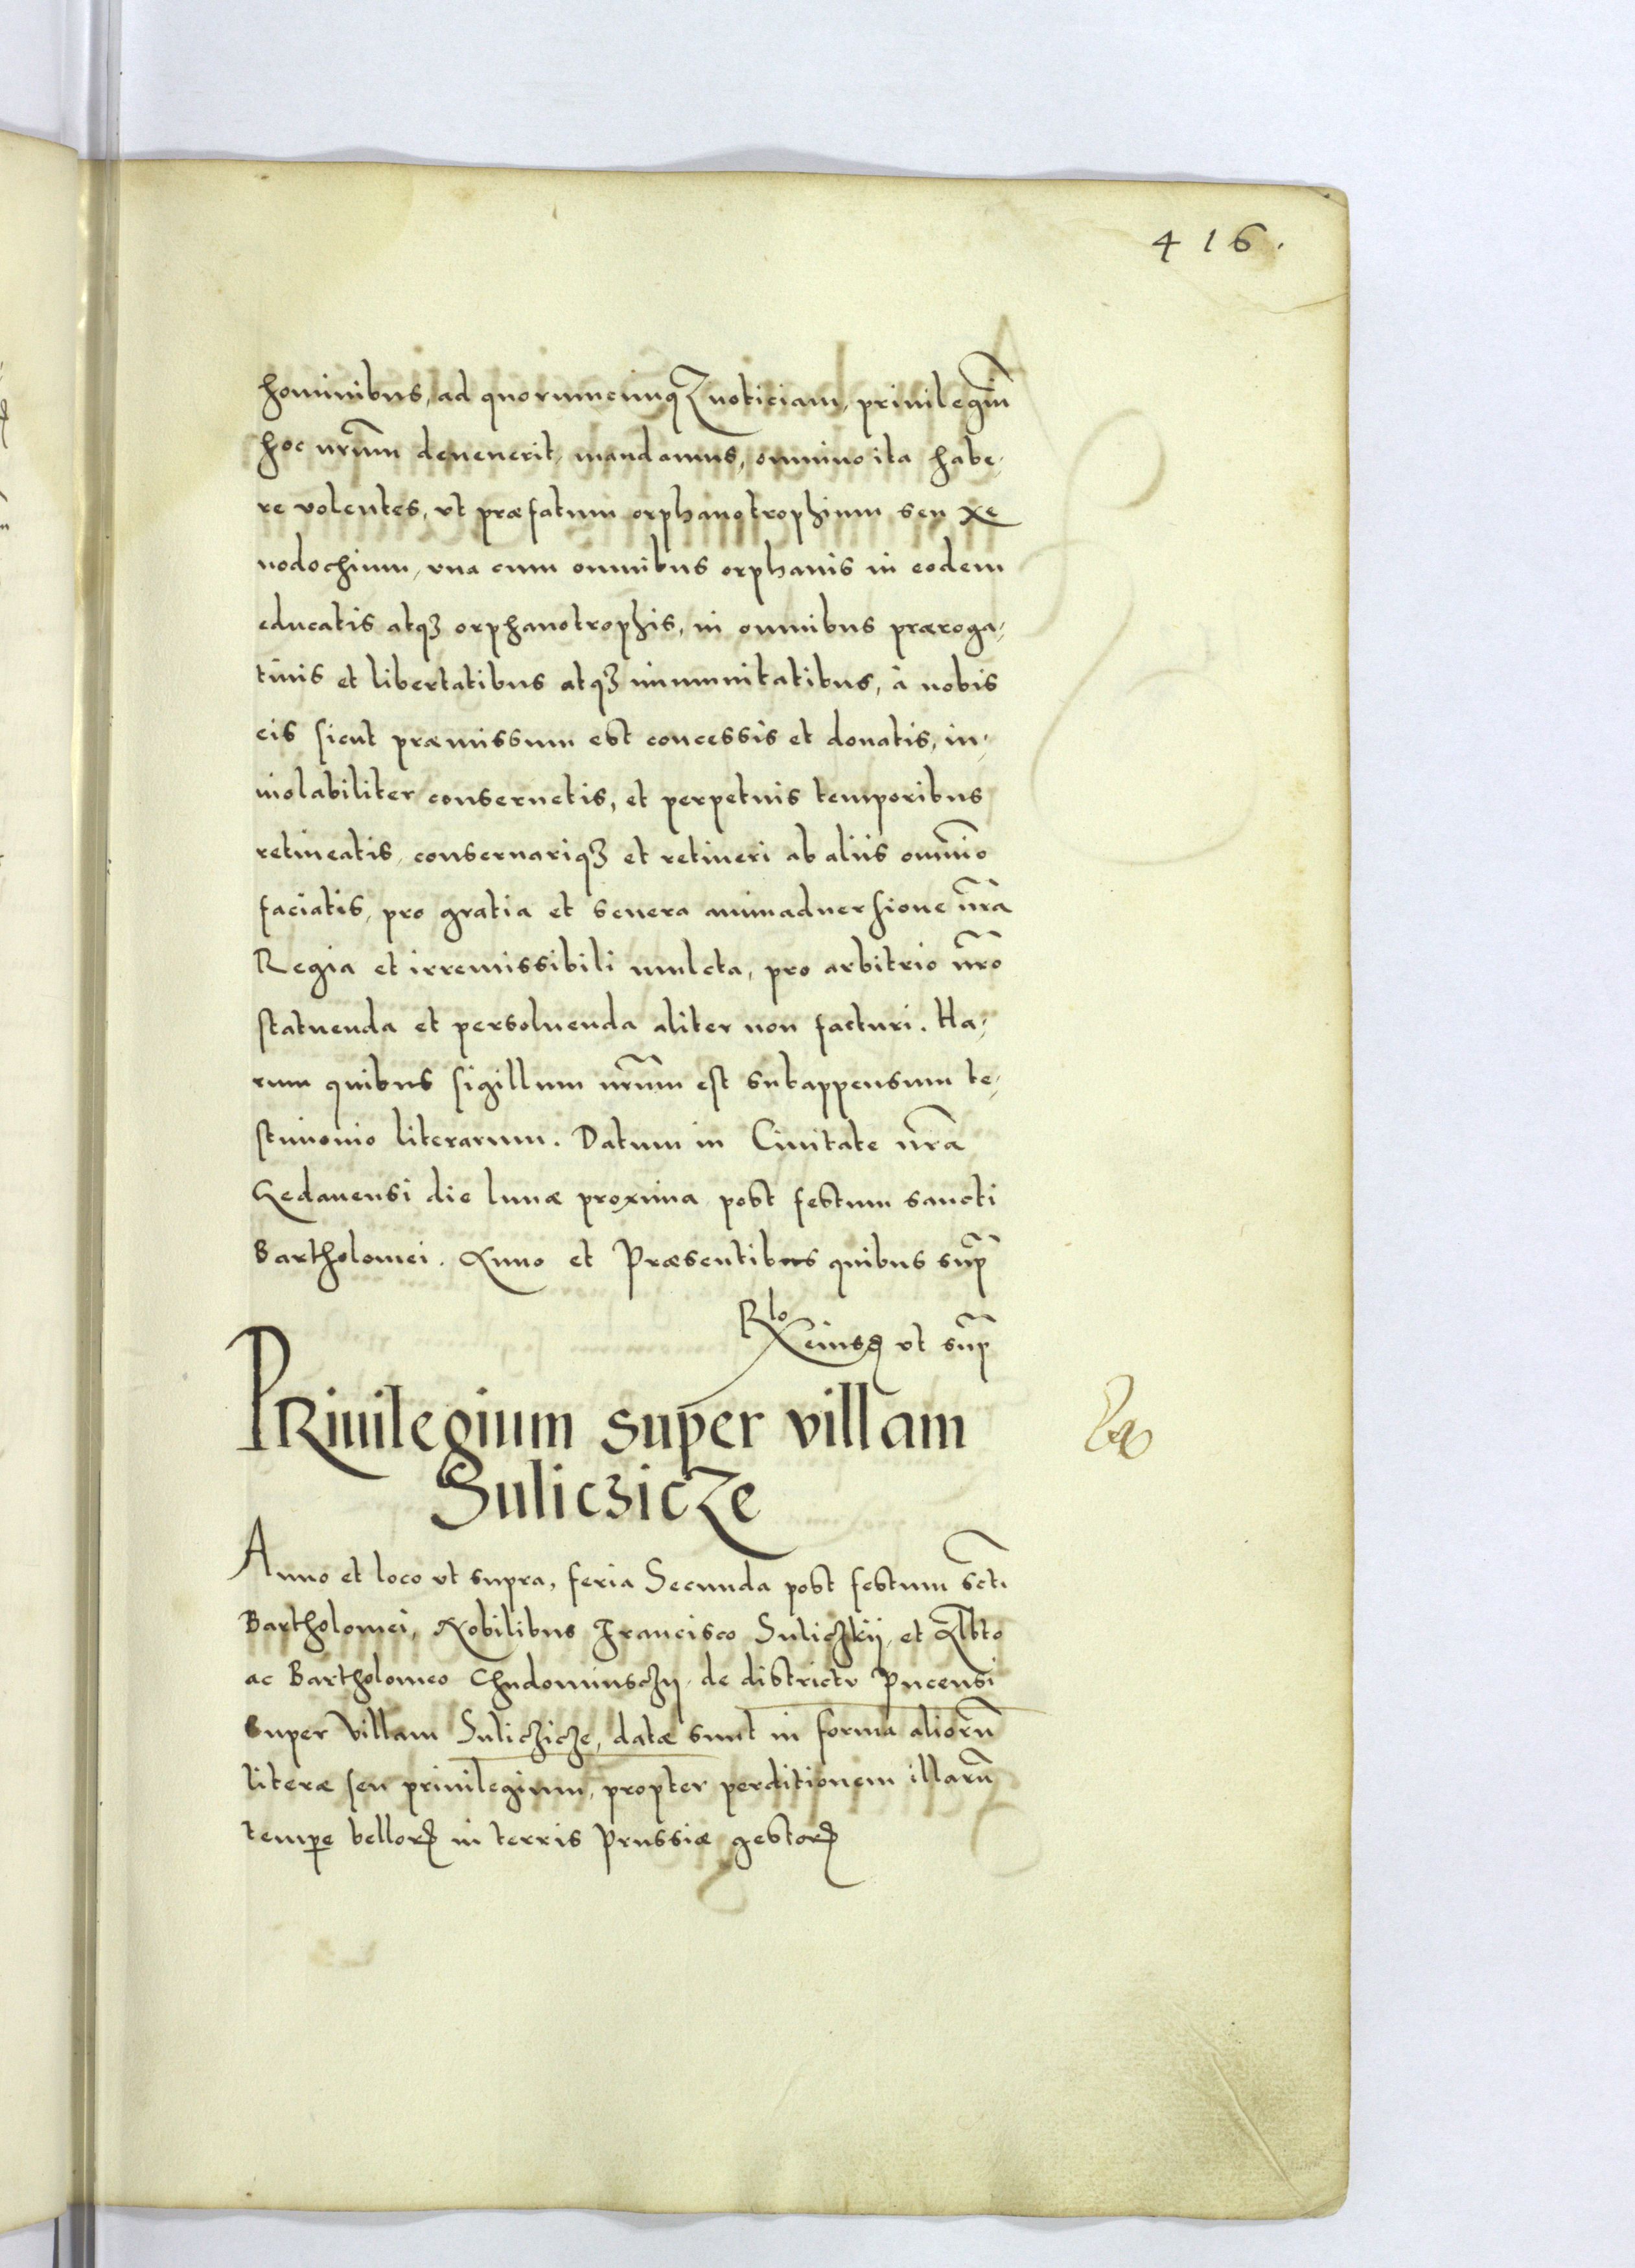 416.
hominibus, ad quorumcunqꝫ noticiam, priuilegiũ
hoc nr̃um deuenerit, mandamus, omnino ita habe,
re volentes, vt præfatum orphanotrophium seu xe
nodochium, vna cum omnibus orphanis in eodem
educatis atqꝫ orphanotrophis, in omnibus præroga,
tiuis et libertatibus atqꝫ immunitatibus, à nobis
eis sicut præmissum est concessis et donatis, in,
uiolabiliter conseruetis, et perpetuis temporibus
retineatis, conseruariqꝫ et retineri ab aliis omñio
faciatis, pro gratia et seuera animaduersione nr̃a
Regia et irremissibili mulcta, pro arbitrio nr̃o
statuenda et persoluenda aliter non facturi. Ha,
rum quibus sigillum nr̃um est subappensum te,
stimonio literarum. Datum in Ciuitate nr̃a
Gedanensi die lunæ proxima post festum sancti
Bartholomei. Anno et Præsentibus quibus sup̃
Rlo eiusd vt sup̃
PRiuilegium super villam
Suliczicze
Anno et loco vt supra, feria Secunda post festum sc̃ti
Bartholomei, Nobilibus Francisco Suliczkij, et Albto
ac Bartholomeo Chudominsczij, de districtu Pucensi
super villam Suliczicze, datæ sunt in forma aliorũ
literæ seu priuilegium, propter perditionem illarũ
tempe belloꝝ in terris Prussiæ gestoꝝ